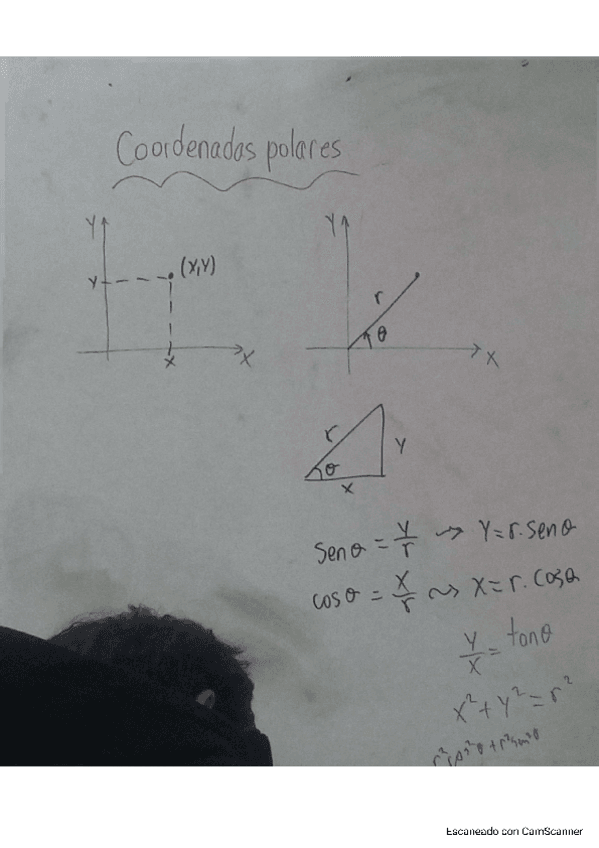 Coordenadas polares
Y
Y
(X,Y)
X
X
Y
r
θ
X
r
Y
θ
X
Sen θ = Y/r → Y = r. Sen θ
cos θ = X/r ⤳ X = r. Cos θ
Y/X = tan θ
X² + Y² = r²
r²cos²θ + r²sen²θ
Escaneado con CamScanner